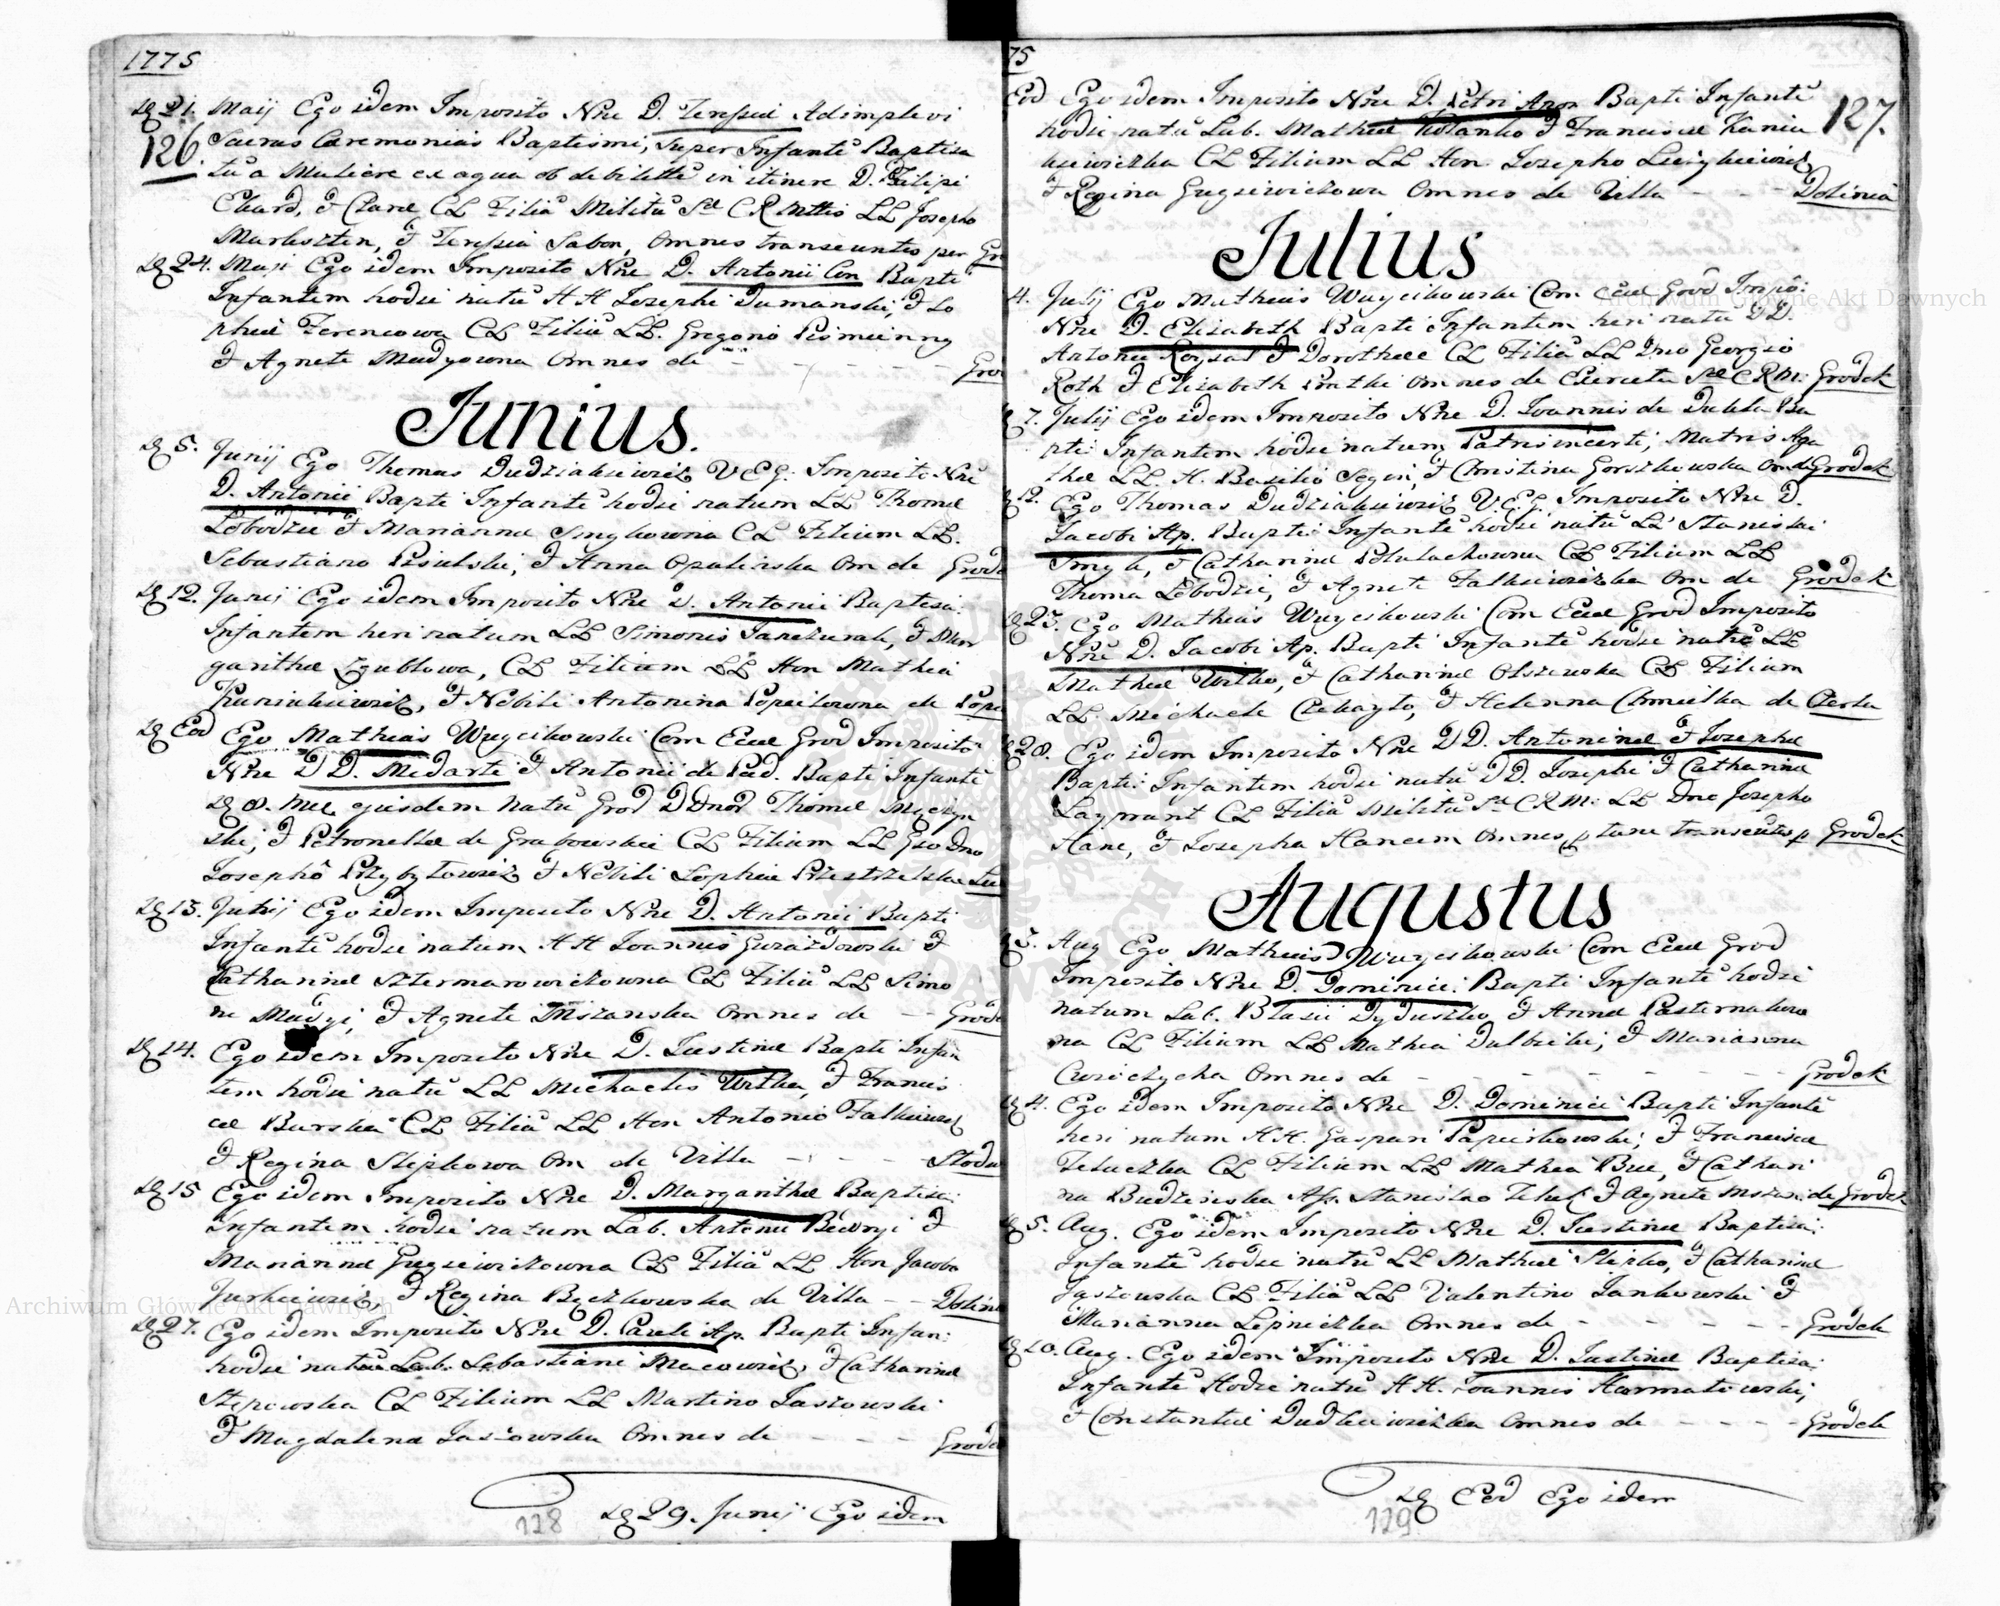 1775
D 21. Maij Ego idem Imposito Nne D. Teresiae Adimplevi
126.
Sacras Caeremonias Baptismi, super Infantē Baptisa
tū a Muliere ex aqua ob debilitē in itinere D. Filipi
Ekard, & Clarae CL Filiā Militū Sae CR Mttis LL Josepho
Markszten, & Teresia Sabon, omnes transeuntes per Gro
D 24. Maji Ego idem Imposito Nne D. Antonii Con Bapti
Infantem hodie natū HH Josephi Dumanski, & So
phiae Ferencowa CL Filiū LL. Gregorio Pismienny
& Agnete Madyowna Omnes de - - - - - Grod
Junius.
D 5. Junij Ego Thomas Dudziakiewicz V.E.G. Imposito Nne
D. Antonii Bapti Infantē hodie natum LL Thomae
Lobodzic & Mariannae Smykowna CL Filium LL.
Sebastiano Pisulski, & Anna Opalinska Om de Grode
D 12. Junij Ego idem Imposito Nne D. Antonii Baptisa:
Infantem heri natum LL Simonis Janczurak, & Mar
garithae Zgublowa, CL Filium LL Hon Mathia
Kuniakiewicz, & Nobili Antonina Popielowna de Popi
D Eod Ego Mathias Wuycikowski Com Eccl Grod Imposito
Nne DD. Medarti & Antonii de Pad. Bapti Infantē
D 8. Mee ejusdem natū Grod D Dnor Thomae
ski, & Petronellae de Grabowskie CL Filium LL Gso Dno
Josephô Przybytowicz & Nobili Sophia Przestrzelska
D 13. Junij Ego idem Imposito Nne D. Antonii Bapti
Infantē hodie natum HH Joannis Gwiazdowski &
Catharinae Sztermarowiczowna CL Filiū LL Simo
ne Madyi, & Agnete Mszanska Omnes de - - Grode
D 14. Ego idem Imposito Nne D. Justinae Bapti Infan
tem hodie natū LL Michaelis Witka, & Francis
cae Burska CL Filiā LL Hon Antonio Falkiewicz
& Regina Slepkowa Om de Villa - - - - Stodu
D 15 Ego idem Imposito Nne D. Margarithae Baptisa:
Infantem hodie natum Lab. Antonii Biednyi &
Mariannae Gugsiewiczowna CL Filiā LL Hon Jacobo
Jurkiewicz, & Regina Bęczkowska de Villa - - Dolinia
D 27. Ego idem Imposito Nne D. Pauli Ap. Bapti Infan:
hodie natū Lab. Sebastiani Macowicz, & Catharinae
Stepowska CL Filium LL Martino Jaszowski
& Magdalena Jaszowska Omnes de - - - Grode
D 29. Junij Ego idem
128
75
Eod Ego idem Imposito Nne D. Petri Apor Bapti Infantē
127.
hodie natū Lab. Mathiae Kolanko & Franciscae Kunia
kiewiczka CL Filium LL Hon Josepho
& Regina Gugsiewiczowa Omnes de Villa - - - Dolinia
Julius
4. Julij Ego Mathias Wuycikowski Com Eccl Grod Impô:
Nne D. Elisabeth Bapti Infantem heri natū DD.
Antonii & Dorotheae CL Filiā LL Dno Georgio
Roth & Elisabeth Omnes de Exercitu Sae CRM: Grodek
7. Julij Ego idem Imposito Nne D. Joannis de Dukla Ba
pti: Infantem hodie natum Patris incerti, Matris Aga
thae LL. H. Basilio & Christina Gorszkowska Om de Grodek
D 12. Ego Thomas Dudziakiewicz V.E.G. Imposito Nne D.
Jacobi Ap. Bapti: Infantē hodie natū LL Stanislai
Smyk, & Catharinae CL Filium LL
Thoma Lobodzic, & Agnete Falkiewiczka Om de Grodek
D 25. Ego Mathias Wuycikowski Com Eccl Grod Imposito
Nne D. Jacobi Ap. Bapti Infantē hodie natū LL
Mathiae Witko, & Catharinae Olszewska CL Filium
LL. Michaele & Helenna Chmielka de
D 28. Ego idem Imposito Nne DD. Antoninae & Josephae
Bapti: Infantem hodie natū DD. Josephi & Catharinae
CL Filiā Militū Sae CRM: LL Dno Josepho
Hane, & Josepha Hancem Omnes p tunc transeūtes p Grodek
Augustus
D 3. Aug Ego Mathias Wuycikowski Com Eccl Grod
Imposito Nne D. Dominici Bapti Infantē hodie
natum Lab. Blasii Dyduszko & Annae Pasternakow
na CL Filium LL Mathia Dulbicki, & Marianna
Omnes de - - - - - - - Grodek
D 4. Ego idem Imposito Nne D. Dominici Bapti Infantē
heri natum HH. Gaspari Papuszkowski, & Franciscae
CL Filium LL Mathia Buc, & Cathari
na Budzinska Ass. Stanislao & Agnete de Grodek
D 5. Aug. Ego idem Imposito Nne D. Justinae Baptisa:
Infantē hodie natū LL Mathiae Slepko, & Catharinae
Jaszowska CL Filiā LL Valentino Jankowski &
Marianna Lipniczka Omnes de - - - - - Grodek
D 10. Aug. Ego idem Imposito Nne D. Justinae Baptisa:
Infantē Hodie natū HH. Joannis Harmatowski,
& Constantiae Dudkiewiczka Omnes de - - - - Grodek
D Eod Ego idem
129
Archiwum Główne Akt Dawnych
Archiwum Główne Akt Dawnych